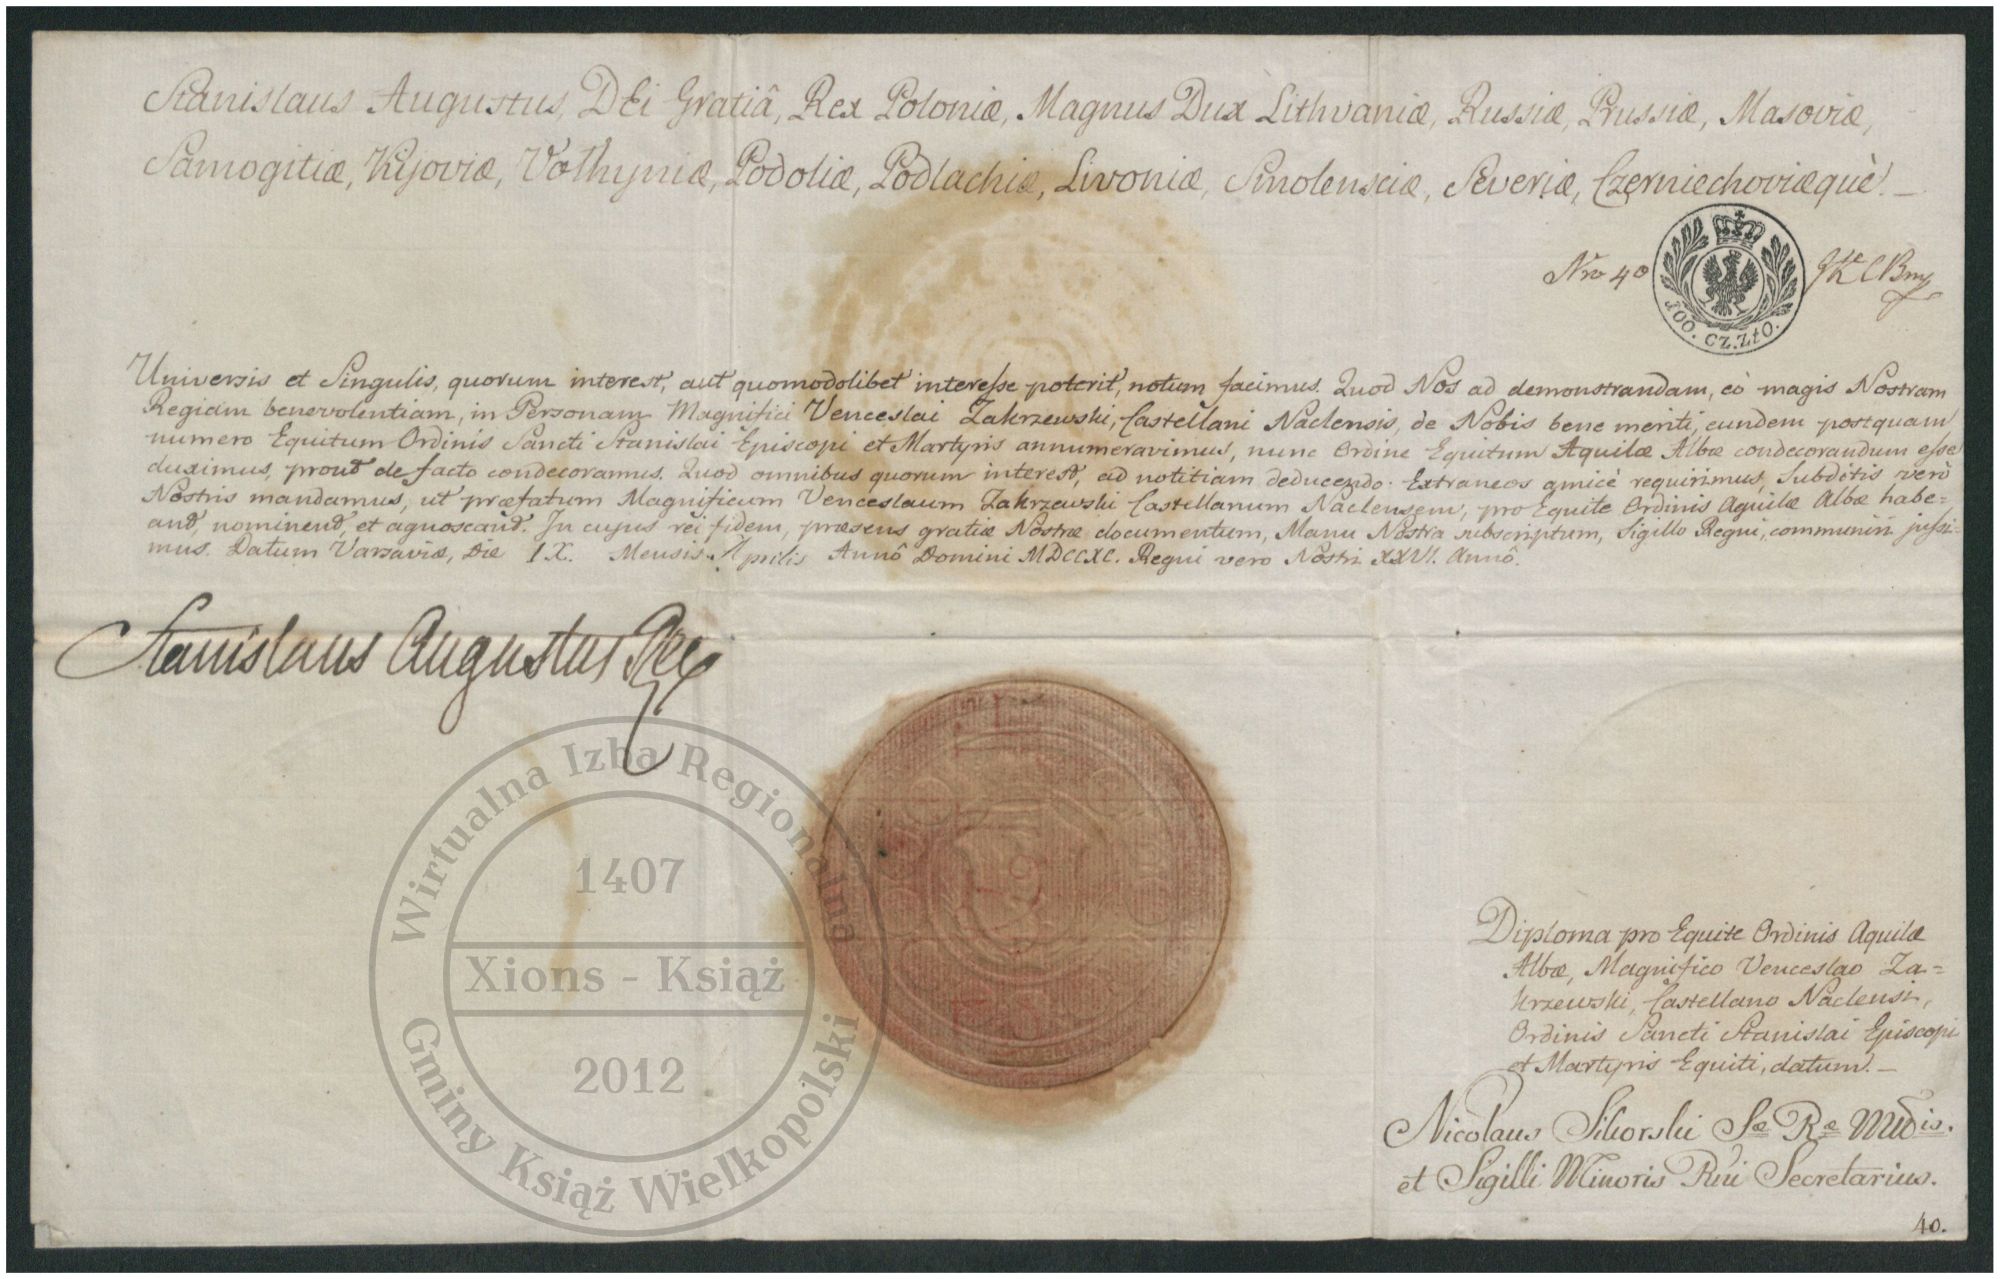 Stanislaus Augustus, DEi Gratiâ, Rex Poloniæ, Magnus Dux Lithvaniæ, Russiæ, Prussiæ, Masoviæ,
Samogitiæ, Kijoviæ, Volhyniæ, Podoliæ, Podlachiæ, Livoniæ, Smolensciæ, Severiæ, Czerniechoviæquè. —
Nro 40
100. CZ.ZŁO.
Universis et Singulis, quorum interest, aut quomodolibet interesse poterit, notum facimus. Quod Nos ad demonstrandam, eò magis Nostram
Regiam benevolentiam, in Personam Magnifici Venceslai Zakrzewski, Castellani Naclensis, de Nobis bene meriti, eundem postquam
numero Equitum Ordinis Sancti Stanislai Episcopi et Martyris annumeravimus, nunc Ordine Equitum Aquilæ Albæ condecorandum esse
duximus, prout de facto condecoramus. Quod omnibus quorum interest, ad notitiam deducendo. Extraneos amicè requirimus, Subditis verò
Nostris mandamus, ut præfatum Magnificum Venceslaum Zakrzewski Castellanum Naclensem, pro Equite Ordinis Aquilæ Albæ habe=
ant, nominent, et agnoscant. In cujus rei fidem, præsens gratiæ Nostræ documentum, Manu Nostra subscriptum, Sigillo Regni, communiri jussi=
mus. Datum Varsaviæ, Die IX. Mensis Aprilis Annô Domini MDCCXC. Regni vero Nostri XXVI. Annô.
Stanislaus Augustus Rex
Wirtualna Izba Regionalna
1407
Xions - Książ
2012
Gminy Książ Wielkopolski
Diploma pro Equite Ordinis Aquilæ
Albæ, Magnifico Venceslao Za=
krzewski, Castellano Naclensi,
Ordinis Sancti Stanislai Episcopi
et Martyris Equiti, datum. —
Nicolaus Sikorski Sæ Ræ Mttis.
et Sigilli Minoris Rni Secretarius.
40.